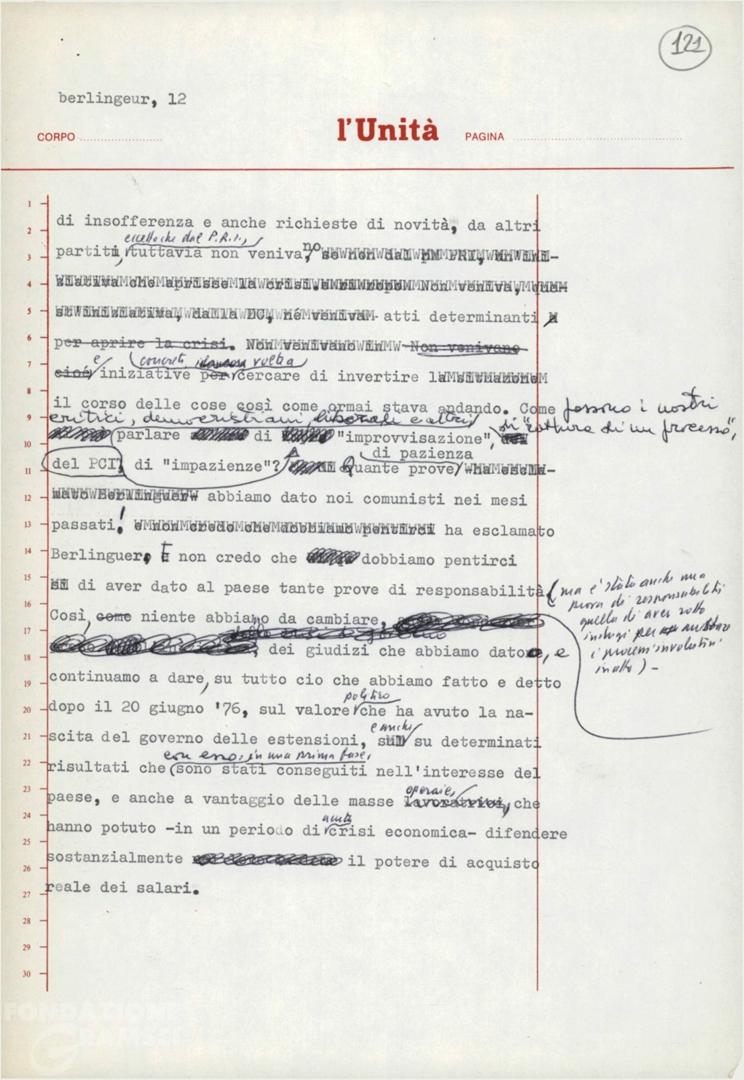 121
berlingeur, 12
CORPO
l'Unità
PAGINA
1
2
3
4
5
6
7
8
9
10
11
12
13
14
15
16
17
18
19
20
21
22
23
24
25
26
27
28
29
30
di insofferenza e anche richieste di novità, da altri
eccetto che dal P.R.I.,
partiti, tuttavia non veniva,no se non dal PRI, un'ini-
ziativa che aprisse la crisi. Non veniva,
iniziativa, dalla DC, né veniva atti determinanti
per aprire la crisi. Non venivano Non venivano
concreti volta
cioè e iniziative per cercare di invertire la
il corso delle cose così come ormai stava andando. Come possono i nostri
critici, democristiani liberali e altri
parlare di "improvvisazione", di "rottura di un processo",
di pazienza
del PCI, di "impazienze"? Quante prove
Berlinguer abbiamo dato noi comunisti nei mesi
passati! e non credo che dobbiamo pentirci ha esclamato
Berlinguer. E non credo che dobbiamo pentirci
di aver dato al paese tante prove di responsabilità
(ma è stata anche una
prova di responsabilità
quella di aver rotto
indugi per
i processi involutivi
in atto) -
Così, come niente abbiamo da cambiare,
, dei giudizi che abbiamo dato, e
continuamo a dare, su tutto cio che abbiamo fatto e detto
politico
dopo il 20 giugno '76, sul valore che ha avuto la na-
e anche
scita del governo delle estensioni, sul su determinati
con esso, in una prima fase,
risultati che sono stati conseguiti nell'interesse del
operaie,
paese, e anche a vantaggio delle masse lavoratrici, che
acuta
hanno potuto -in un periodo di crisi economica- difendere
sostanzialmente il potere di acquisto
reale dei salari.
FONDAZIONE
GRAMSCI